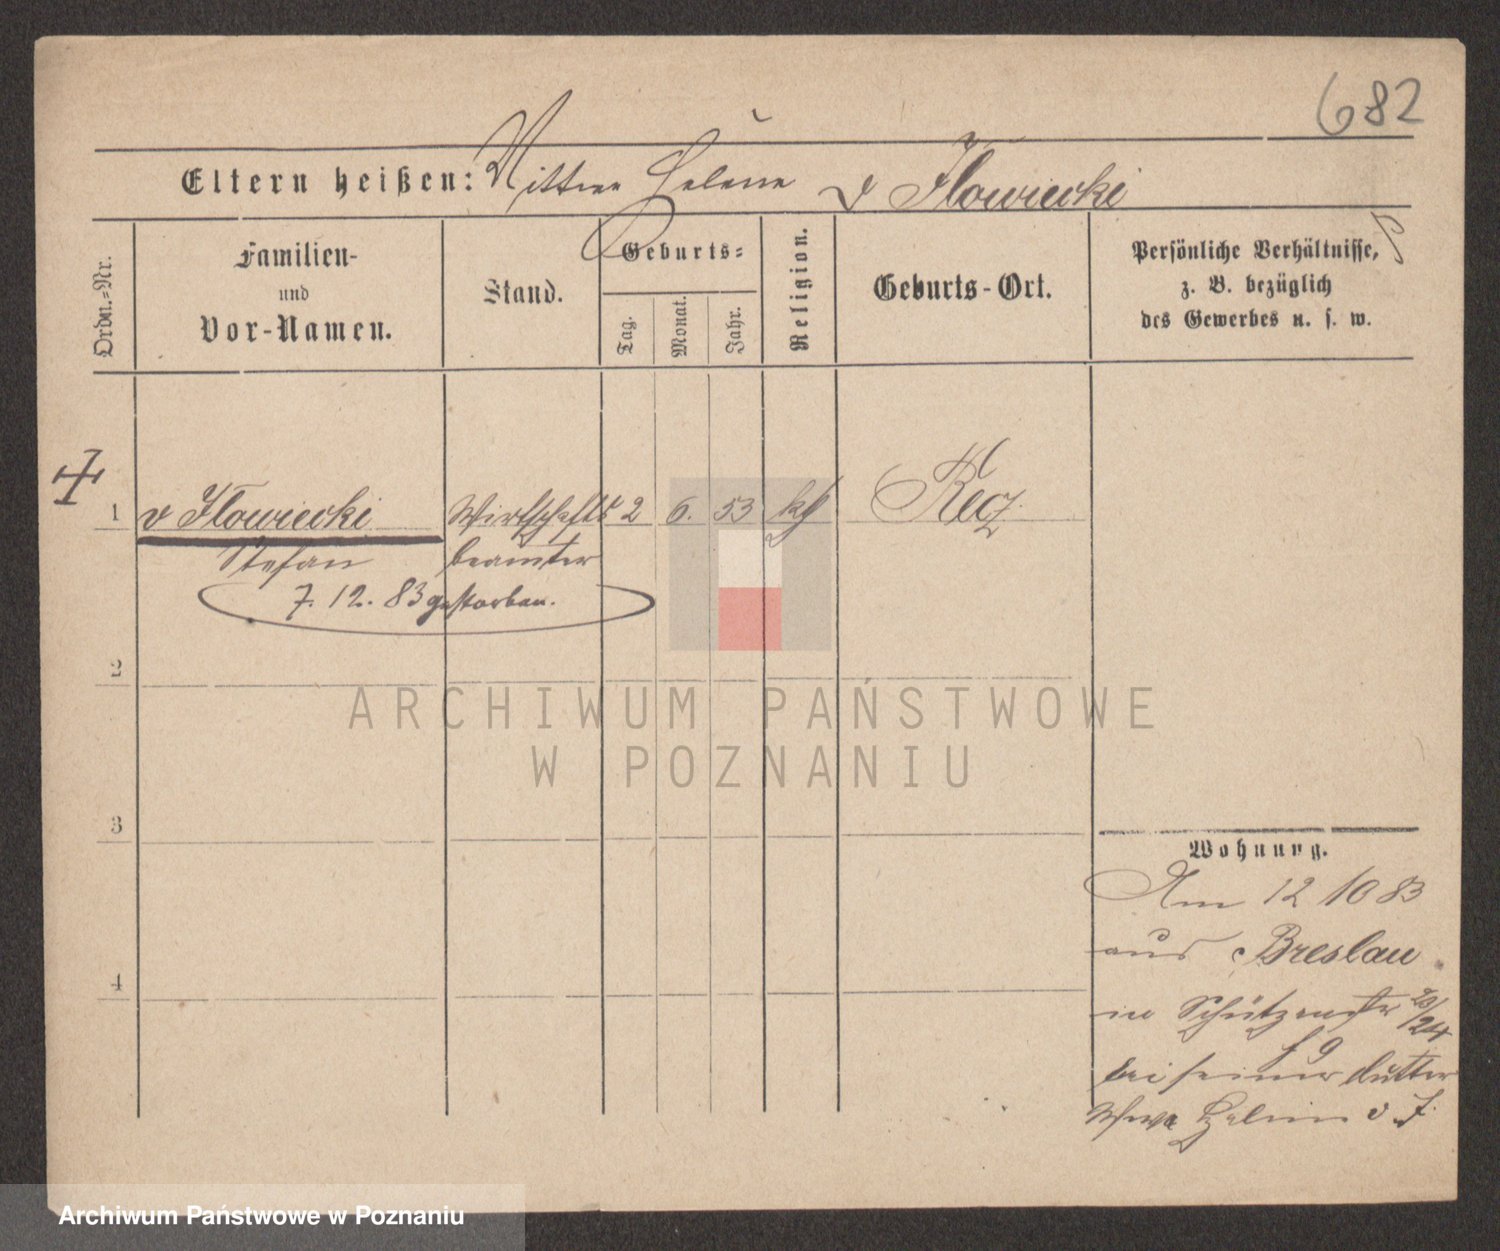 682
Eltern heißen: Mutter Helene v Iłowiecki
Ordn.=Nr.
Familien-
und
Vor-Namen.
Stand.
Geburts=
Tag.
Monat.
Jahr.
Religion.
Geburts-Ort.
Persönliche Verhältnisse,
z. B. bezüglich
des Gewerbes u. s. w.
1 v Iłowiecki Wirthschafts 2 6. 53 kth Recz
Stefan beamter
7. 12. 83 gestorben.
2
3
4
Wohnung.
Am 12 10 83
aus Breslau
in Schützenstr 23/24
bei seiner Mutter
Wwe Helene v I.
ARCHIWUM PAŃSTWOWE
W POZNANIU
Archiwum Państwowe w Poznaniu